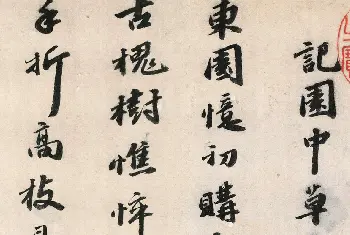 記園中草
東園憶初購
古槐樹憔悴
手折高枝